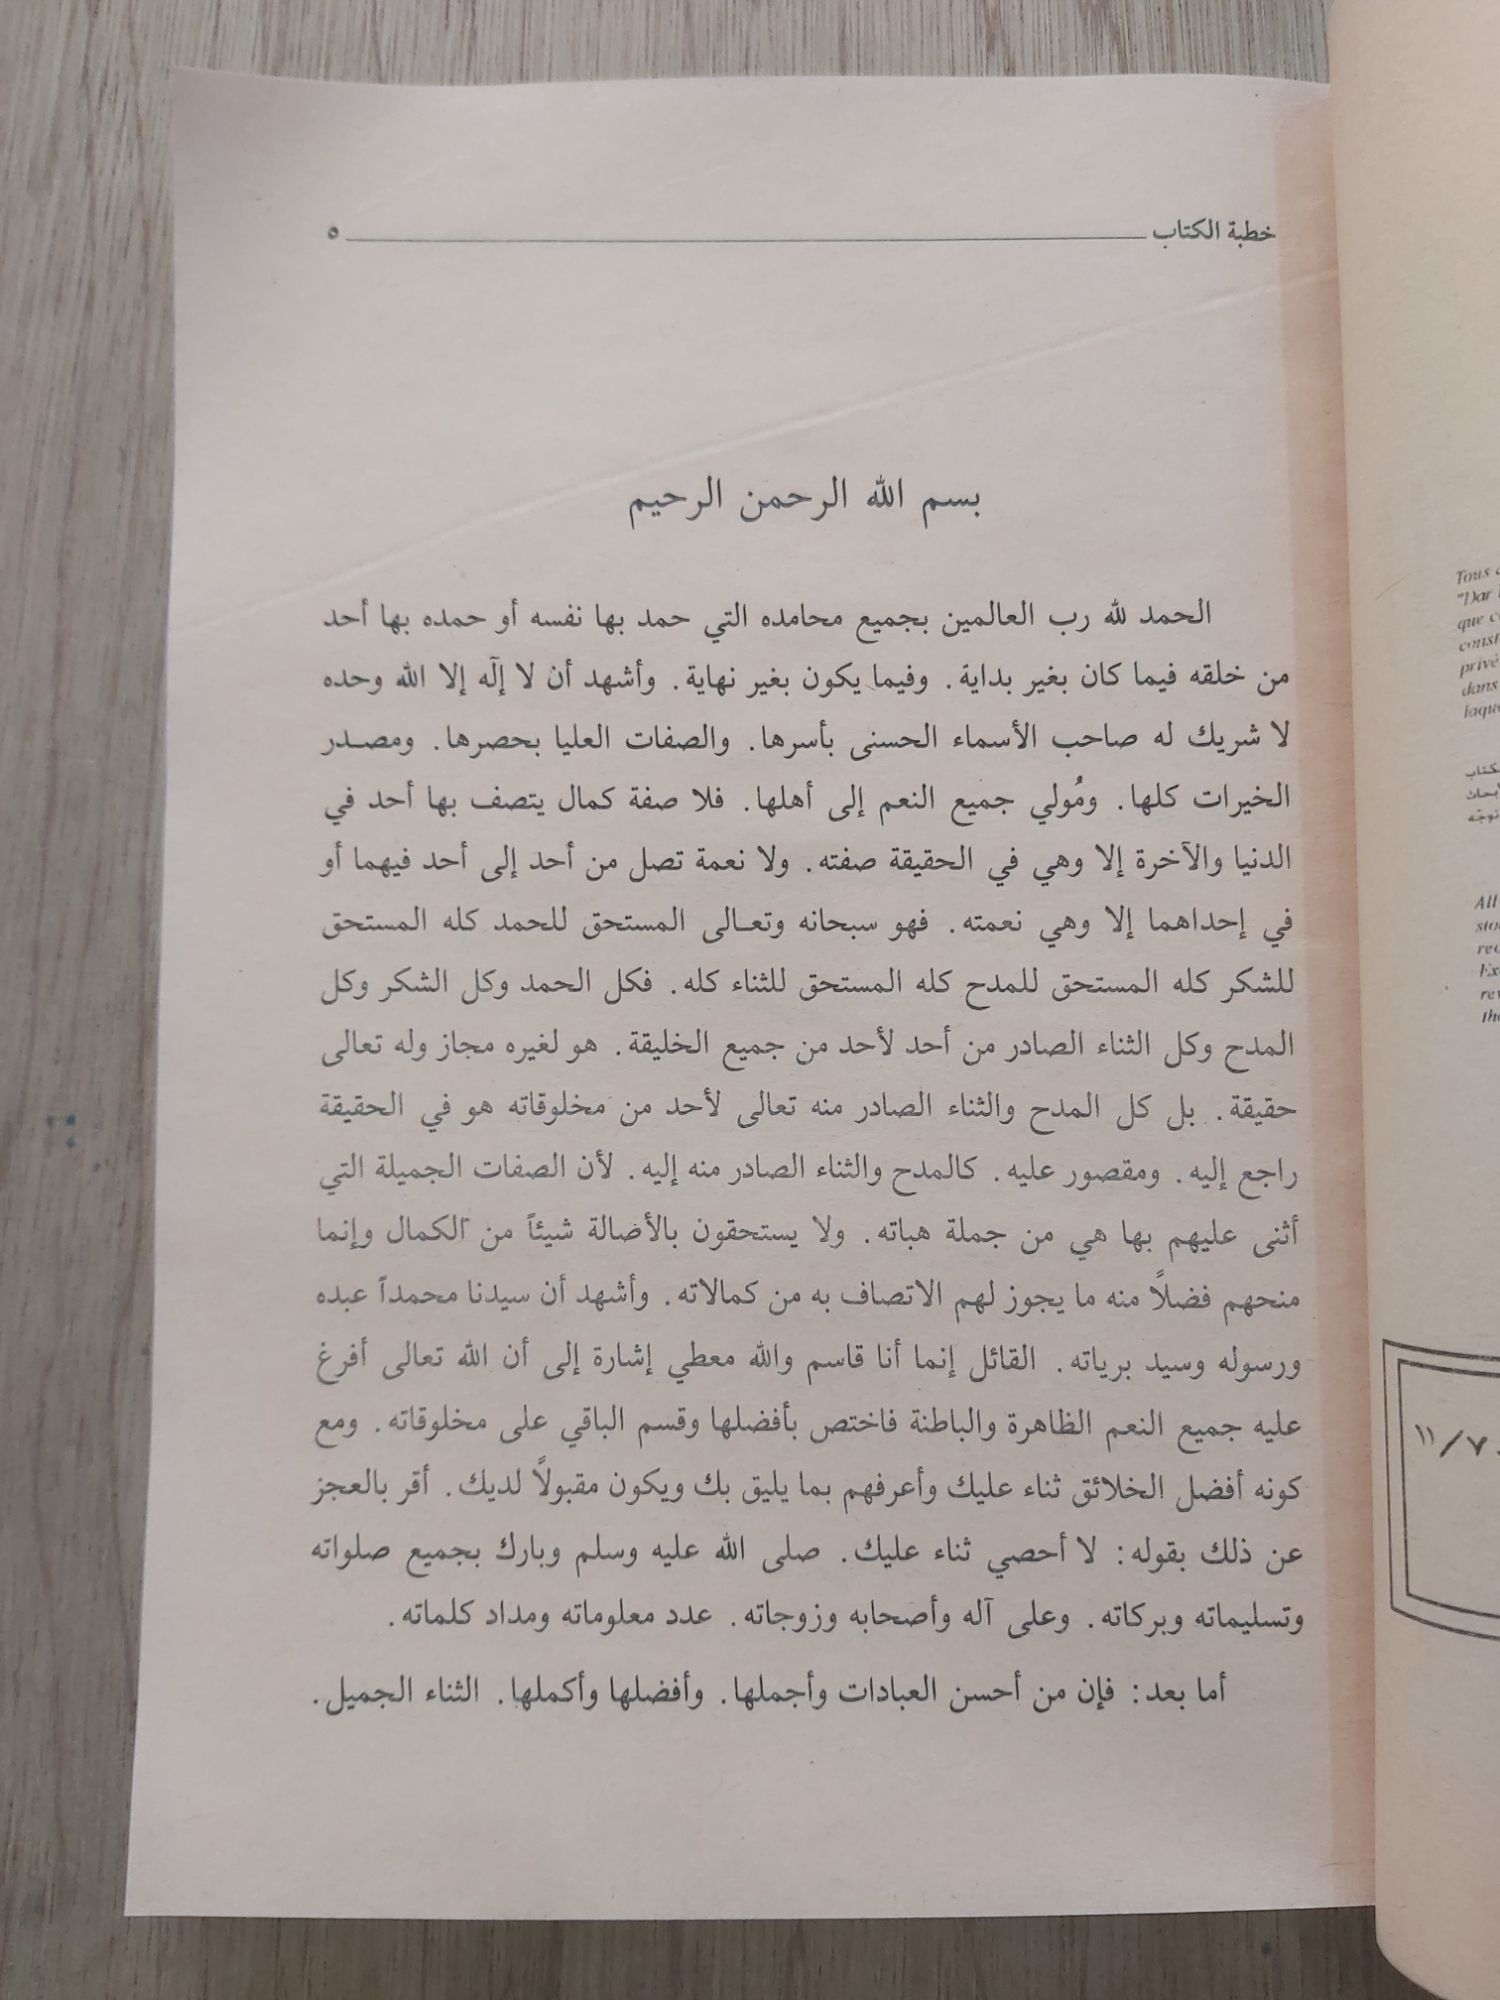 خطبة الكتاب ٥
بسم الله الرحمن الرحيم
الحمد لله رب العالمين بجميع محامده التي حمد بها نفسه أو حمده بها أحد
من خلقه فيما كان بغير بداية. وفيما يكون بغير نهاية. وأشهد أن لا إلٓه إلا الله وحده
لا شريك له صاحب الأسماء الحسنى بأسرها. والصفات العليا بحصرها. ومصدر
الخيرات كلها. ومُولي جميع النعم إلى أهلها. فلا صفة كمال يتصف بها أحد في
الدنيا والآخرة إلا وهي في الحقيقة صفته. ولا نعمة تصل من أحد إلى أحد فيهما أو
في إحداهما إلا وهي نعمته. فهو سبحانه وتعالى المستحق للحمد كله المستحق
للشكر كله المستحق للمدح كله المستحق للثناء كله. فكل الحمد وكل الشكر وكل
المدح وكل الثناء الصادر من أحد لأحد من جميع الخليقة. هو لغيره مجاز وله تعالى
حقيقة. بل كل المدح والثناء الصادر منه تعالى لأحد من مخلوقاته هو في الحقيقة
راجع إليه. ومقصور عليه. كالمدح والثناء الصادر منه إليه. لأن الصفات الجميلة التي
أثنى عليهم بها هي من جملة هباته. ولا يستحقون بالأضالة شيئاً من الكمال وإنما
منحهم فضلاً منه ما يجوز لهم الاتصاف به من كمالاته. وأشهد أن سيدنا محمداً عبده
ورسوله وسيد برياته. القائل إنما أنا قاسم والله معطي إشارة إلى أن الله تعالى أفرغ
عليه جميع النعم الظاهرة والباطنة فاختص بأفضلها وقسم الباقي على مخلوقاته. ومع
كونه أفضل الخلائق ثناء عليك وأعرفهم بما يليق بك ويكون مقبولاً لديك. أقر بالعجز
عن ذلك بقوله: لا أحصي ثناء عليك. صلى الله عليه وسلم وبارك بجميع صلواته
وتسليماته وبركاته. وعلى آله وأصحابه وزوجاته. عدد معلوماته ومداد كلماته.
أما بعد: فإن من أحسن العبادات وأجملها. وأفضلها وأكملها. الثناء الجميل.
Tous
"Dar
que
privé
dans
All
١١/٧